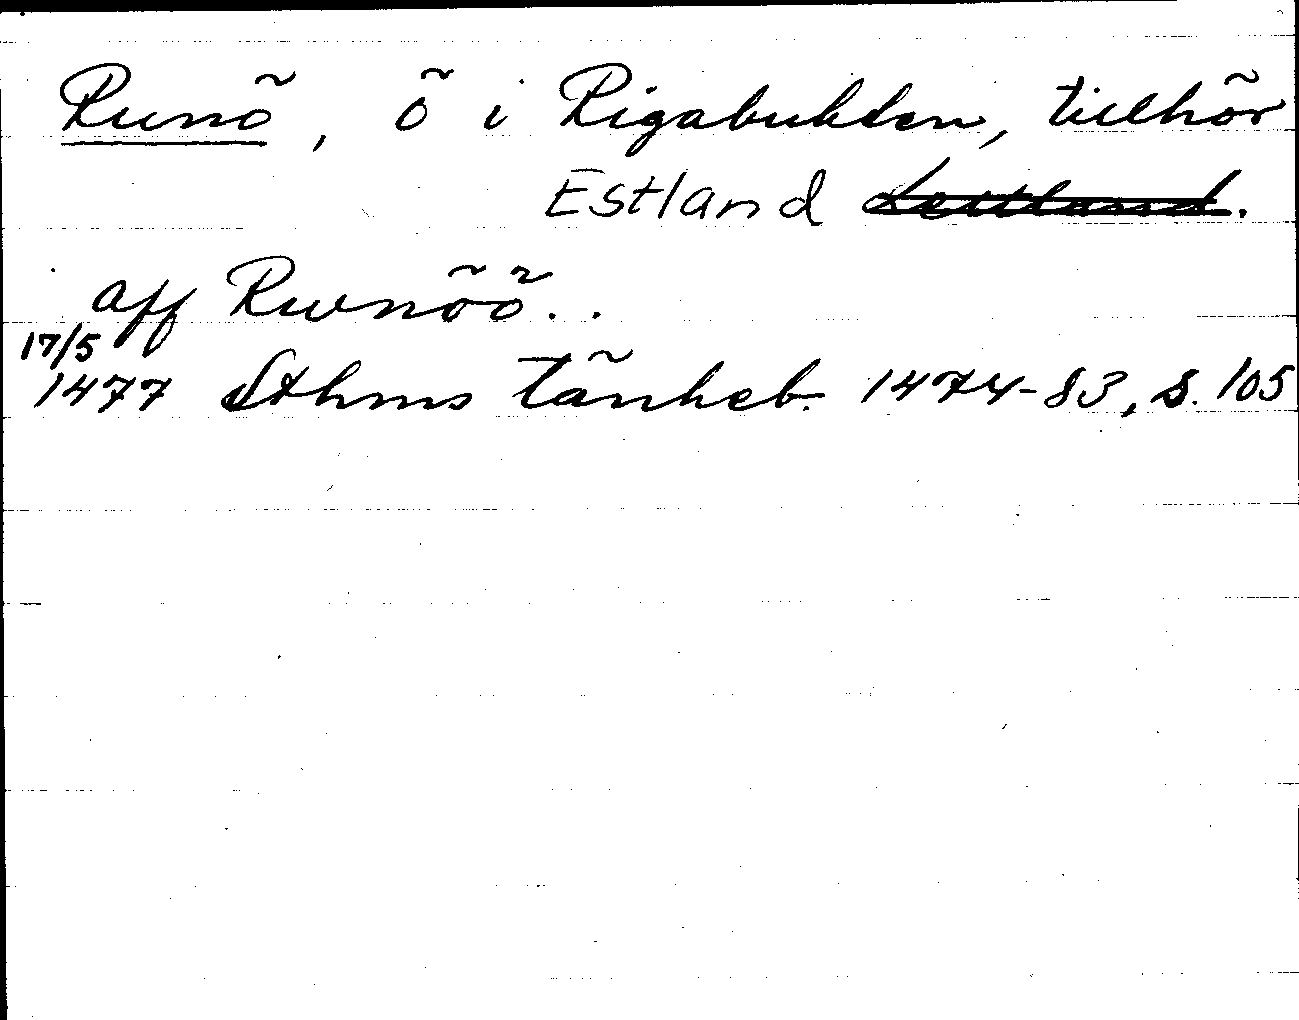 Runö, ö i Rigabukten, tillhör
Estland Lettland.
aff Rwnöö..
17/5
1477 Sthms tänkeb. 1474-83, s. 105